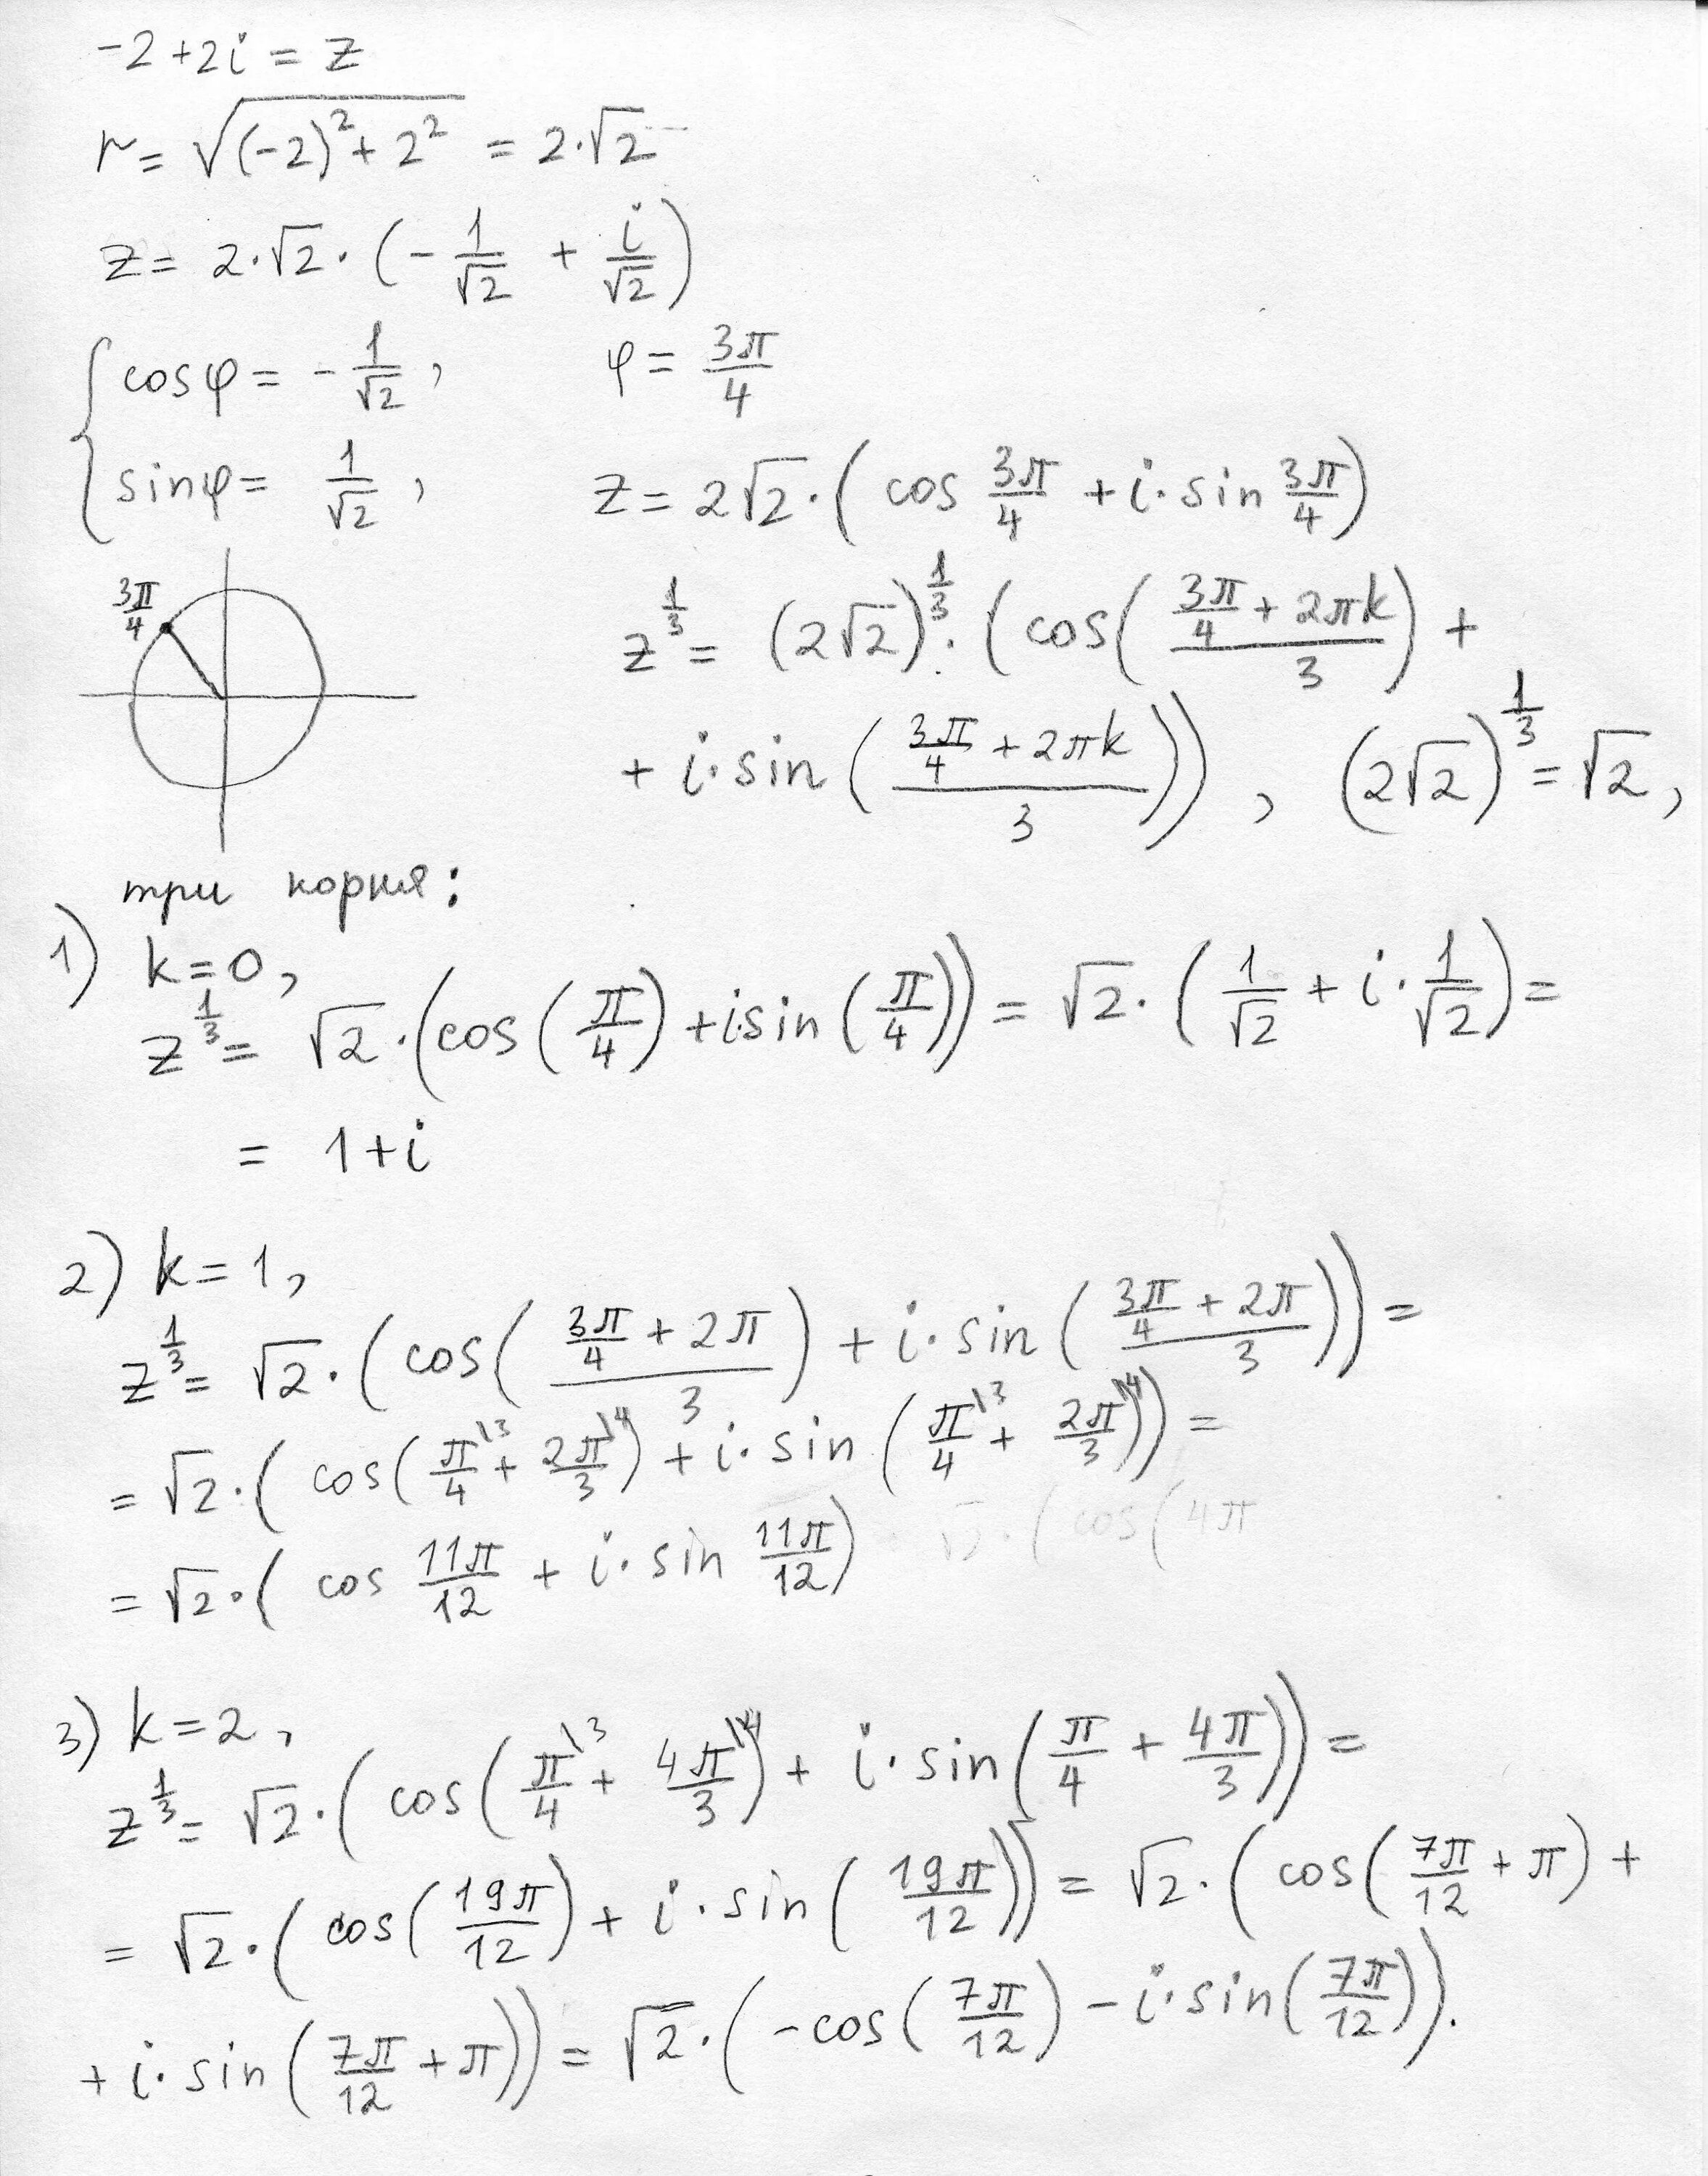 -2+2i = z
r = √((-2)²+2²) = 2·√2
z = 2·√2·(-1/√2 + i/√2)
{ cosφ = -1/√2, φ = 3π/4
sinφ = 1/√2, z = 2√2·(cos 3π/4 + i·sin 3π/4)
3π/4
z^(1/3) = (2√2)^(1/3)·(cos((3π/4 + 2πk)/3) +
+ i·sin((3π/4 + 2πk)/3)), (2√2)^(1/3) = √2,
три корня:
1) k=0,
z^(1/3) = √2·(cos(π/4) + i sin(π/4)) = √2·(1/√2 + i·1/√2) =
= 1+i
2) k=1,
z^(1/3) = √2·(cos((3π/4 + 2π)/3) + i·sin((3π/4 + 2π)/3)) =
= √2·(cos(π/4\3 + 2π/3\4) + i·sin(π/4\3 + 2π/3\4)) =
= √2·(cos 11π/12 + i·sin 11π/12) √2·(cos(4π
3) k=2,
z^(1/3) = √2·(cos(π/4\3 + 4π/3\4) + i·sin(π/4 + 4π/3)) =
= √2·(cos(19π/12) + i·sin(19π/12)) = √2·(cos(7π/12 + π) +
+ i·sin(7π/12 + π)) = √2·(-cos(7π/12) - i·sin(7π/12)).